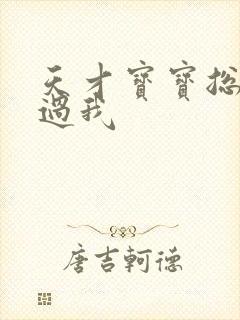 天才寶寶總
過我
唐吉軻德